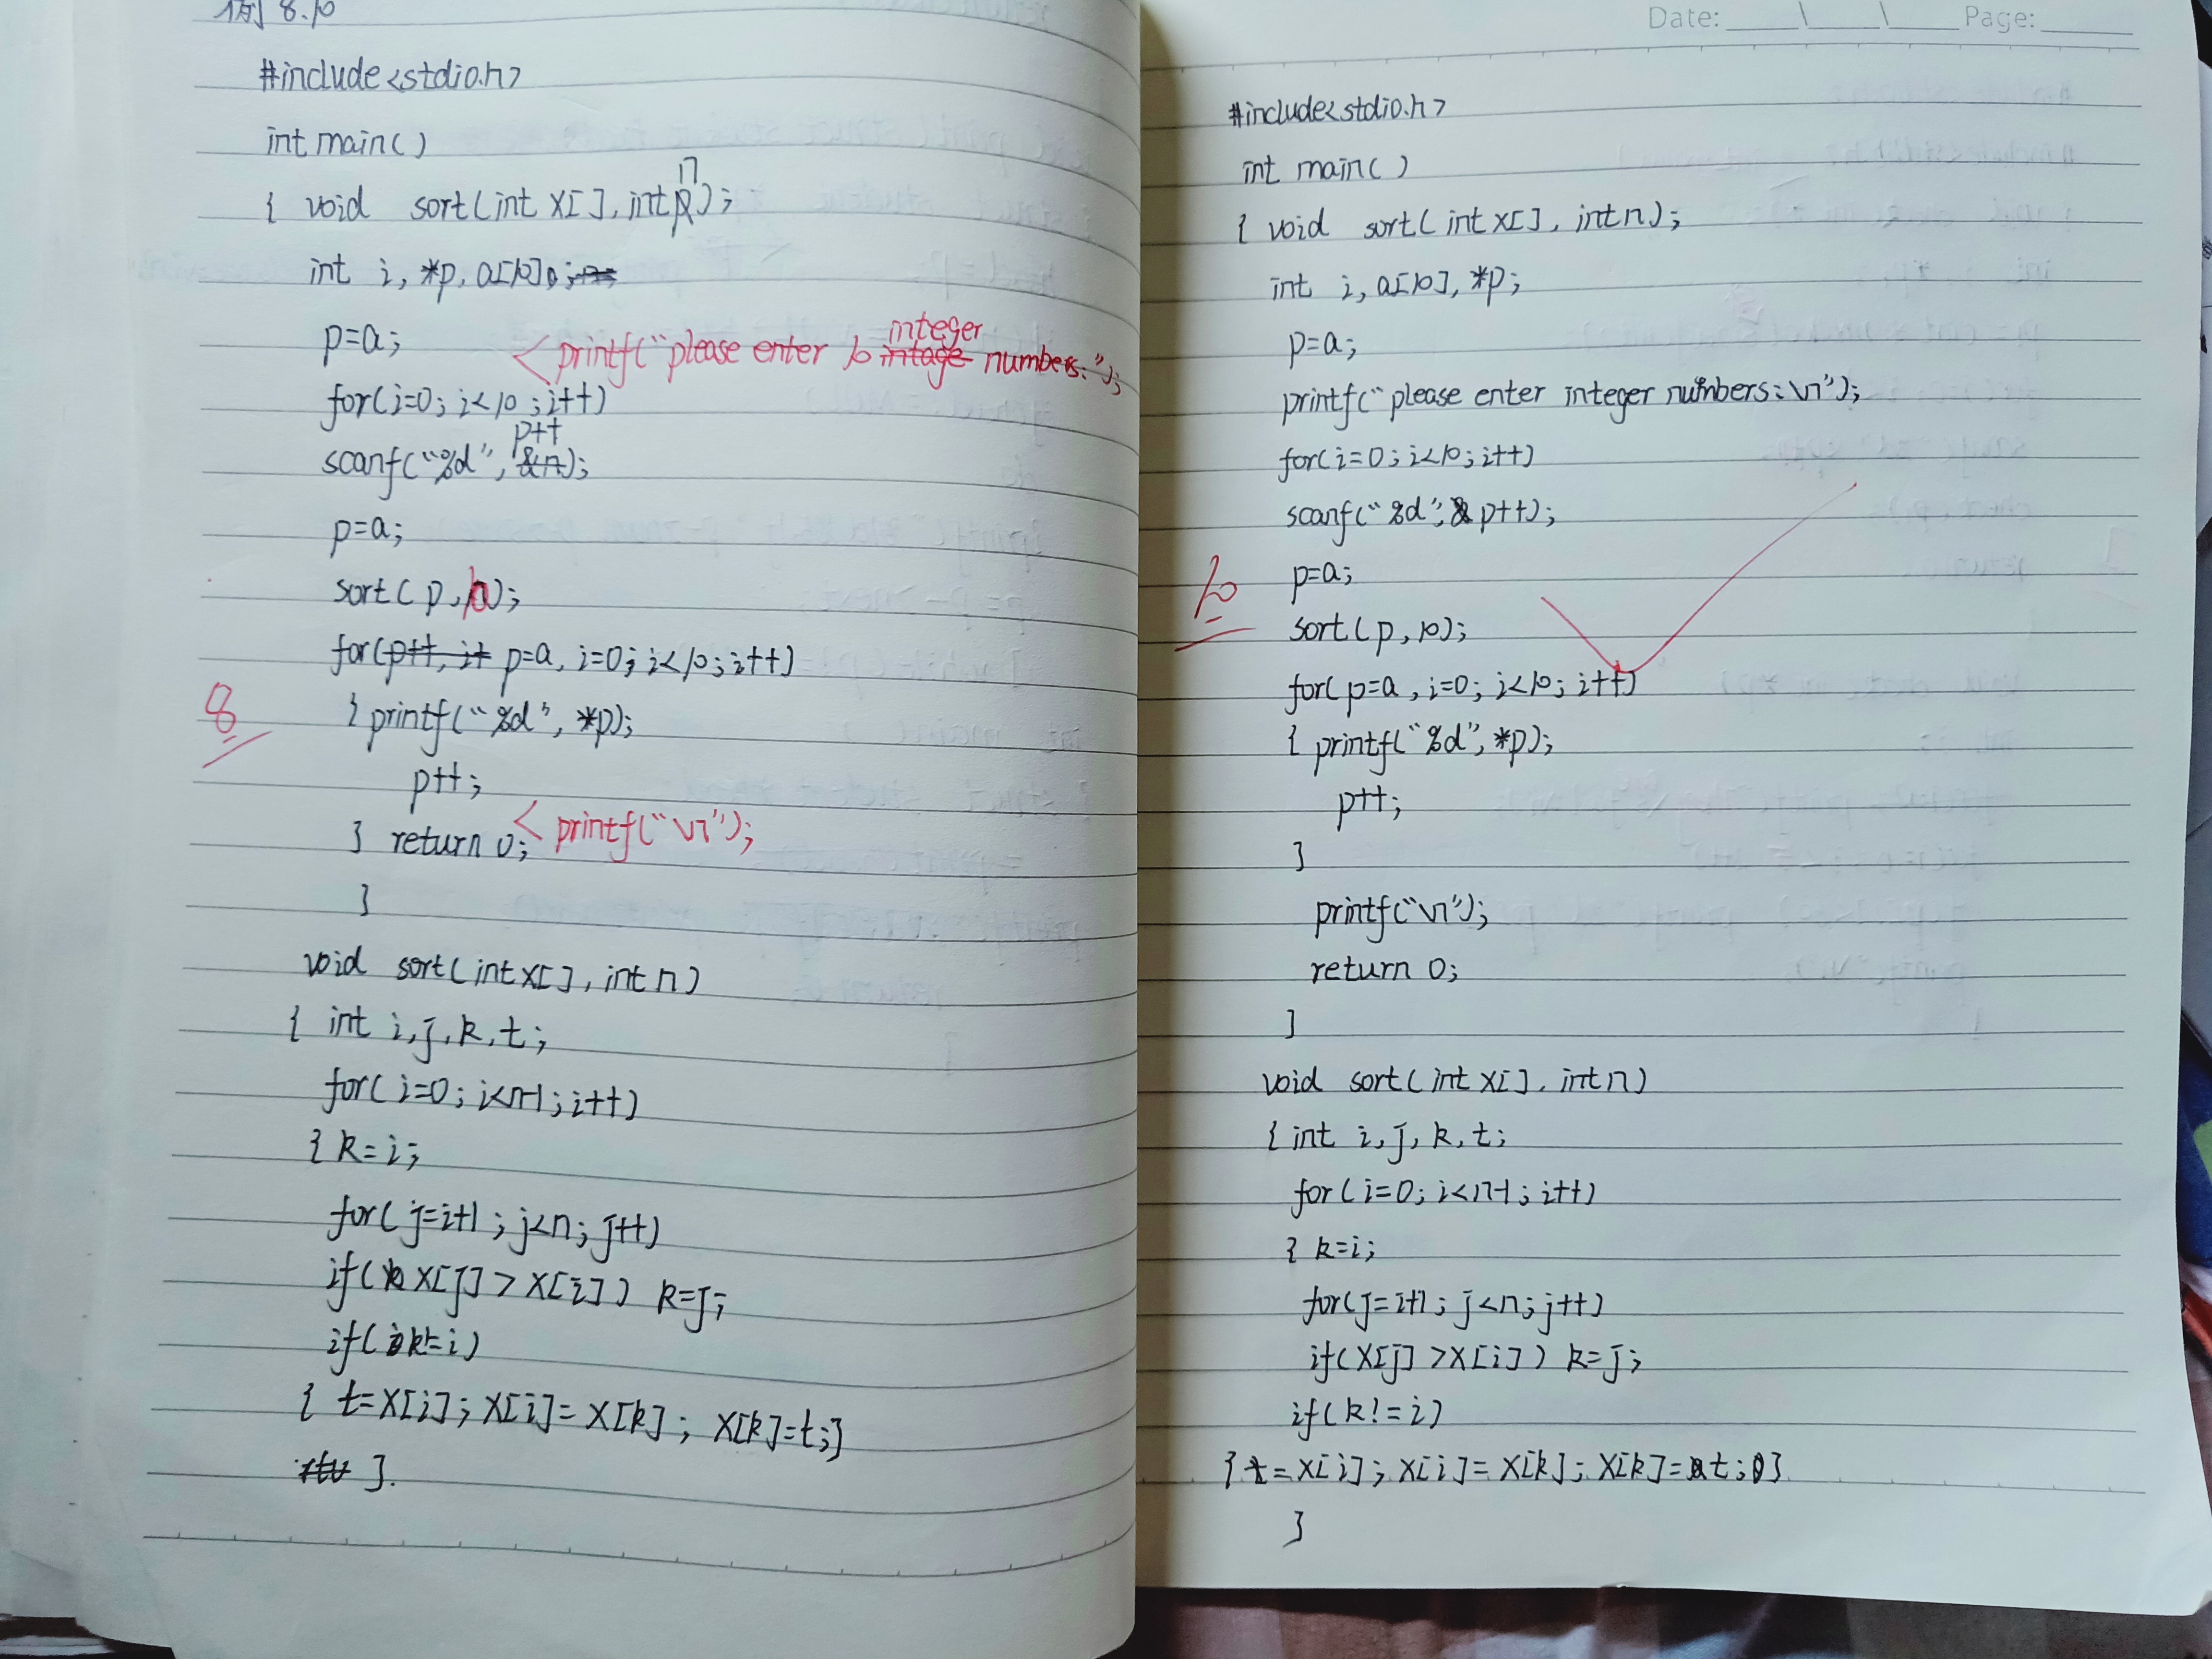 例 8.10
#include<stdio.h>
int main()
{ void sort(int x[], int n);
int i, *p, a[10];
p=a;
printf("please enter 10 integer numbers:");
for(i=0; i<10; i++)
scanf("%d", p++);
p=a;
sort(p,10);
for(p=a, i=0; i<10; i++)
{ printf("%d", *p);
8
p++;
printf("\n");
} return 0;
}
void sort(int x[], int n)
{ int i, j, k, t;
for(i=0; i<n-1; i++)
{ k=i;
for(j=i+1; j<n; j++)
if(x[j] > x[i]) k=j;
if(k!=i)
{ t=x[i]; x[i]=x[k]; x[k]=t;}
}.
Date: \ \ Page:
#include<stdio.h>
int main()
{ void sort(int x[], int n);
int i, a[10], *p;
p=a;
printf("please enter integer numbers:\n");
for(i=0; i<10; i++)
scanf("%d", p++);
p=a;
10
sort(p,10);
for(p=a, i=0; i<10; i++)
{ printf("%d", *p);
p++;
}
printf("\n");
return 0;
}
void sort(int x[], int n)
{ int i, j, k, t;
for(i=0; i<n-1; i++)
{ k=i;
for(j=i+1; j<n; j++)
if(x[j] >x[i]) k=j;
if(k!=i)
{ t=x[i]; x[i]=x[k]; x[k]=t;}
}